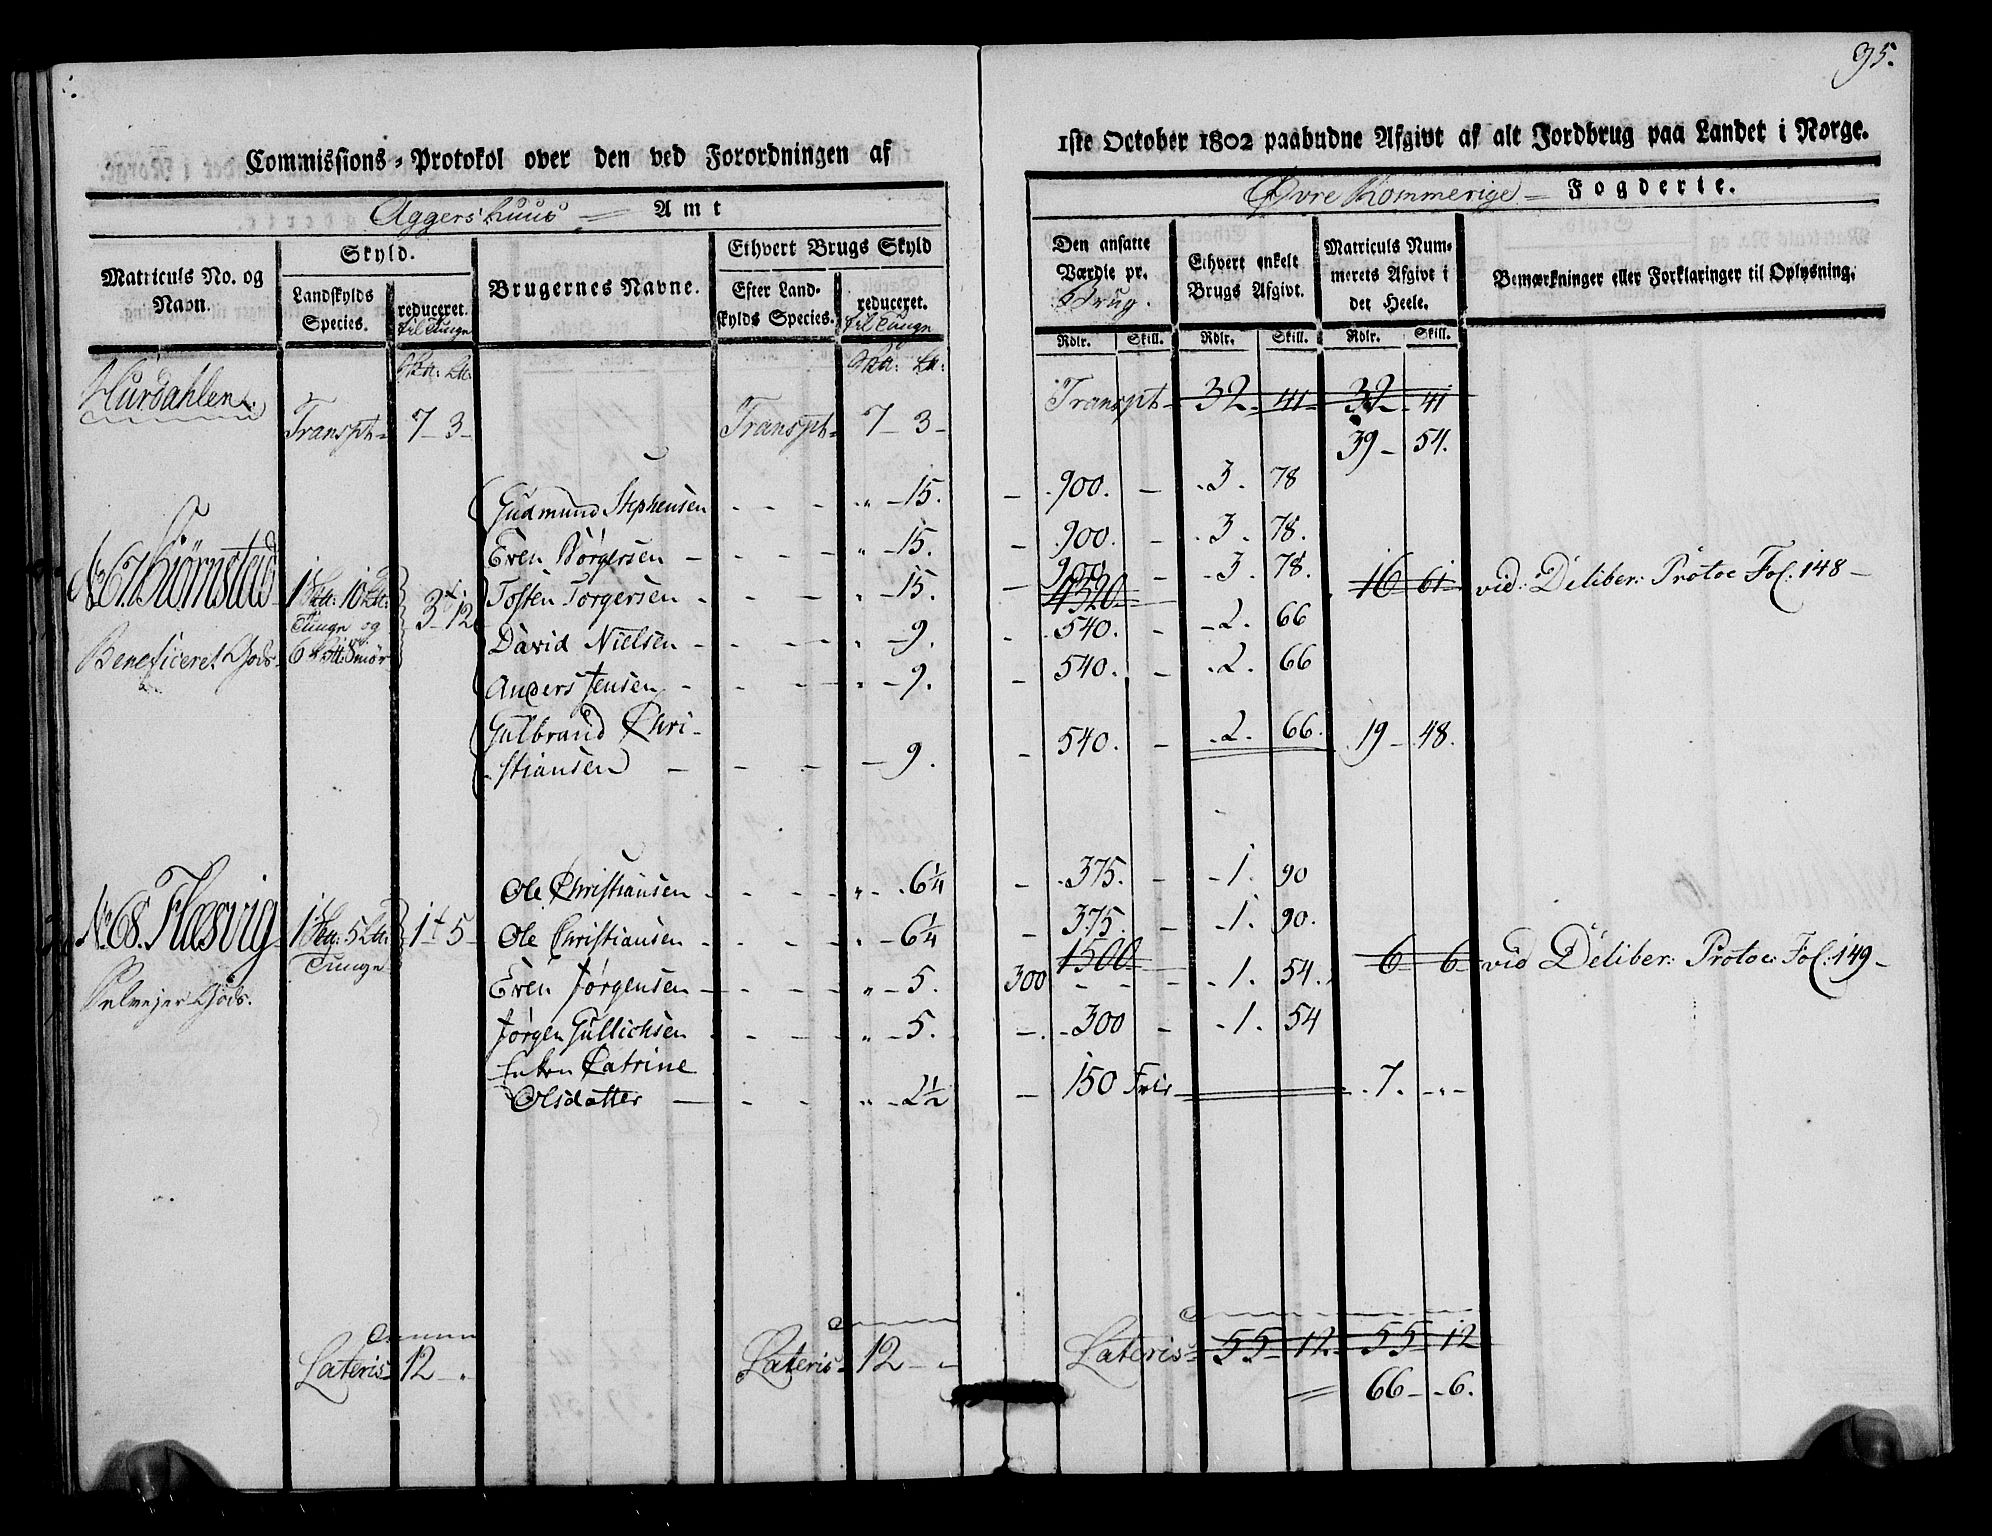 95.
Commissions-Protokol over den ved Forordningen af 1ste October 1802 paabudne Afgivt af alt Jordbrug paa Landet i Norge.
Aggershuus Amt
Øvre Rommerige Fogderie.
Matriculs No. og Navn.
Skyld.
Landskylds Species.
reduceret. til Tunge
Brugernes Navne.
Ethvert Brugs Skyld
Efter Landskylds Species.
reduceret. til Tunge
Den ansatte Værdie pr. Brug.
Ethvert enkelt Brugs Afgivt.
Matriculs Nummerets Afgivt i det Heele.
Bemærkninger eller Forklaringer til Oplysning.
Rdlr. Skill. Rdlr. Skill. Rdlr. Skill.
Hurdahlen
Transpt 7 - 3 - Transpt 7 - 3 - Transpt 32 - 41 - 32 - 41
39 - 54.
Gudmund Stephensen - - - " - 15. - 900. - 3. 78
Even Børgersen - - - " - 15. - 900. - 3. 78.
No 67. Kiørnstad 1 10 3 - 12 Tosten Torgersen - - - " - 15. - 900 - 3. 78. 16 61 vid: Deliber: Protoc Fol. 148 -
4320
Tunge og
Beneficeret Gods. 6 Smør David Nielsen - - - " - 9. - 540. - 2. 66
Anders Jensen - - - " - 9. - 540. - 2. 66
Gulbrand Chri-
stiansen - - - - 9. - 540. - 2. 66. 19 - 48.
Ole Christiansen - - - " - 6¼ - 375. - 1. 90
No 68. Flæsvig 1 5 1 5 Ole Christiansen - - - " - 6¼ - 375. - 1. 90.
Tunge
1500 6 - 6 - vid Deliber: Protoc: Fol: 149 -
Selvejer Gods. Even Jørgensen - - - " - 5. 300 - - - 1. 54.
Jørgen Gullichsen - - - " - 5. - 300 - 1. 54
Enken Catrine
Olsdatter - - - " - 2½ - 150 Frie 7. - " -
Lateris 12 - " Lateris 12 - " Lateris 55 - 12. 55 - 12
66 - 6.